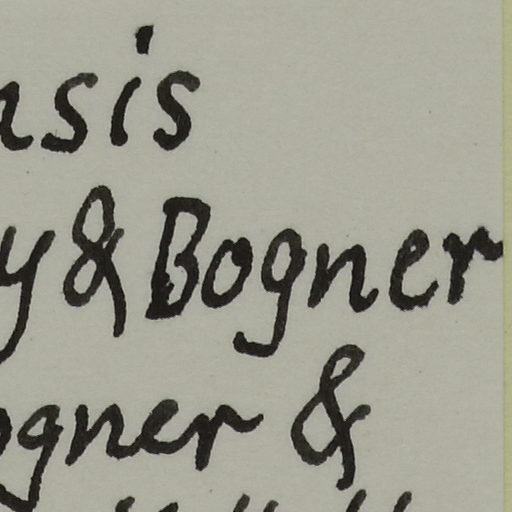 nsis
y & Bogner
ogner &